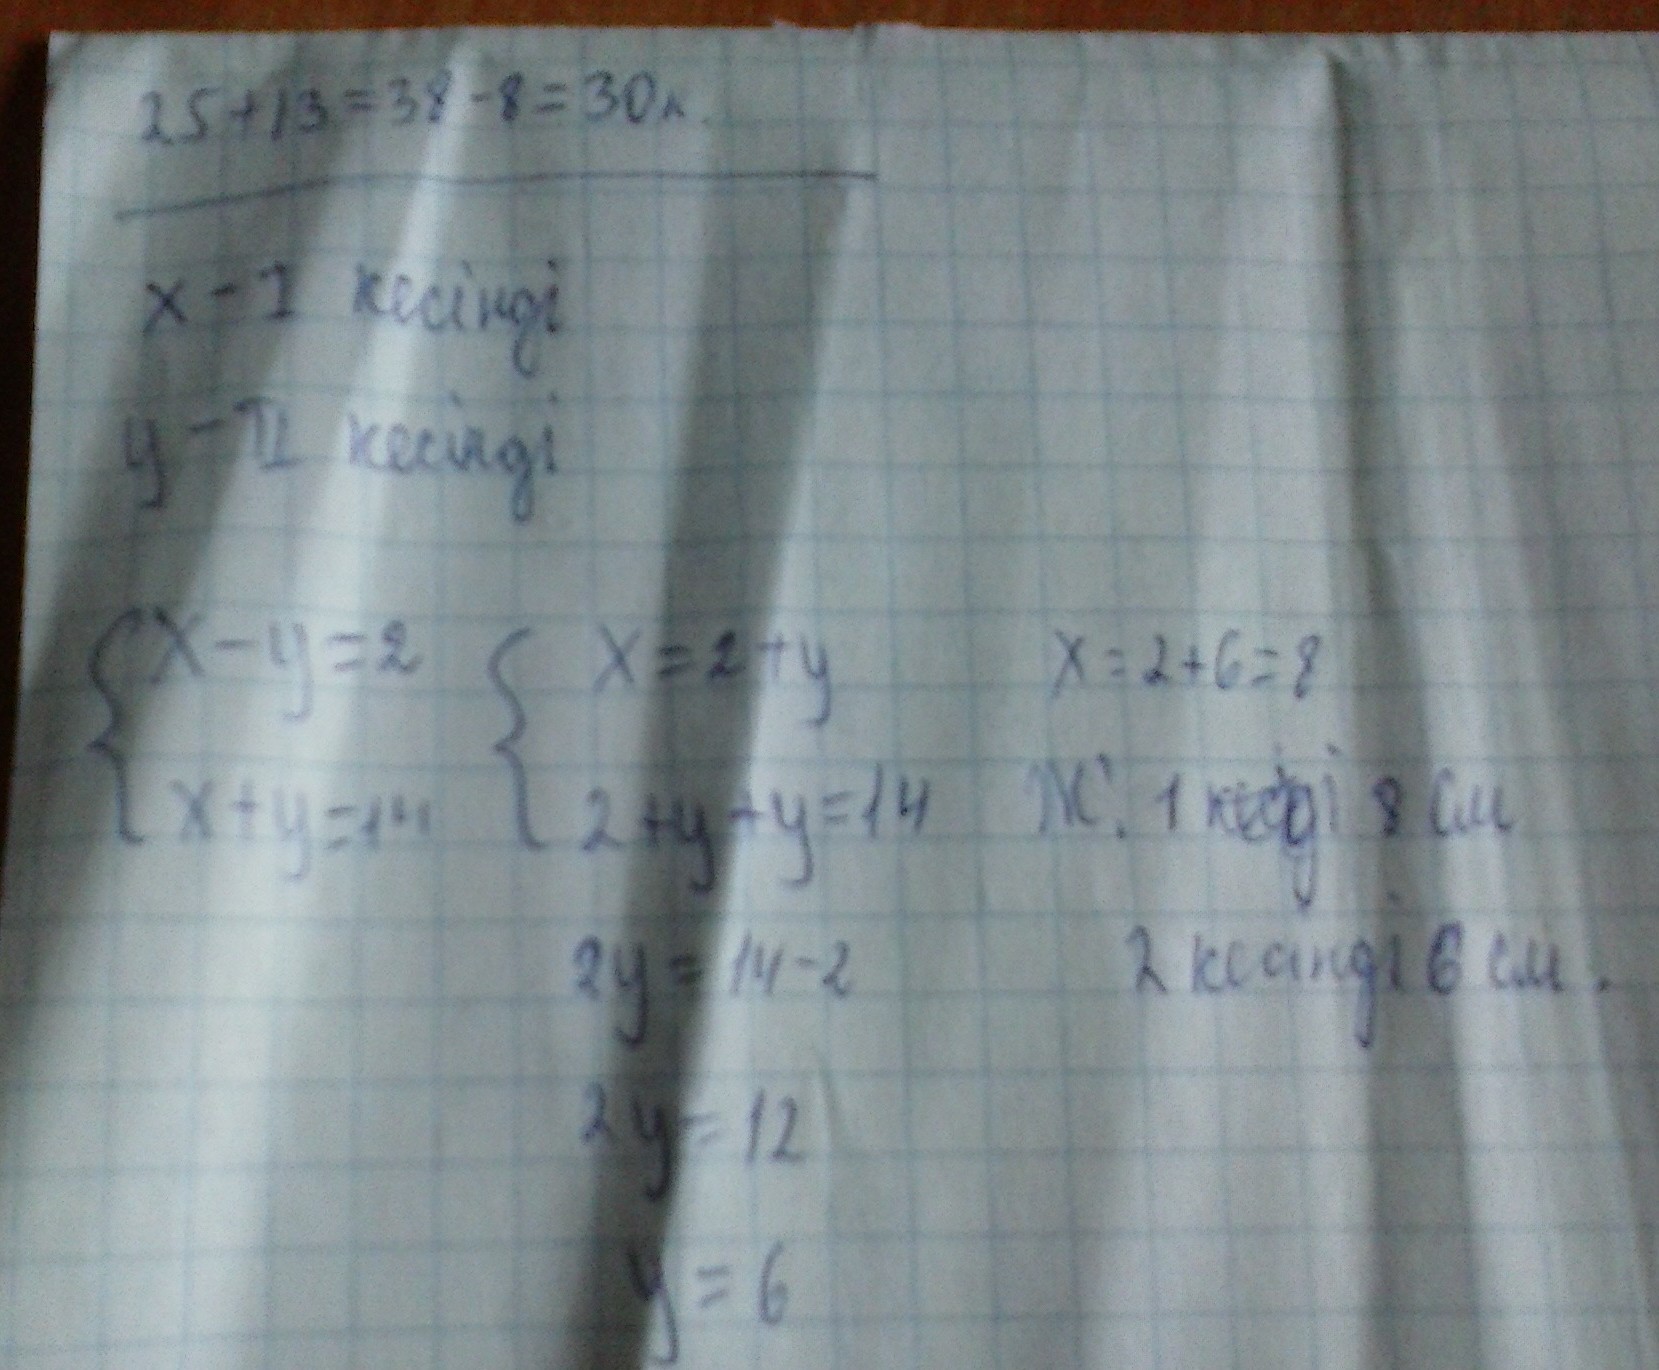 25+13=38-8=30л.
x-I кесінді
y-II кесінді
x-y=2
x+y=14
x=2+y
2+y+y=14
2y=14-2
2y=12
y=6
x=2+6=8
Ж: 1 8 см
2 кесінді 6 см.